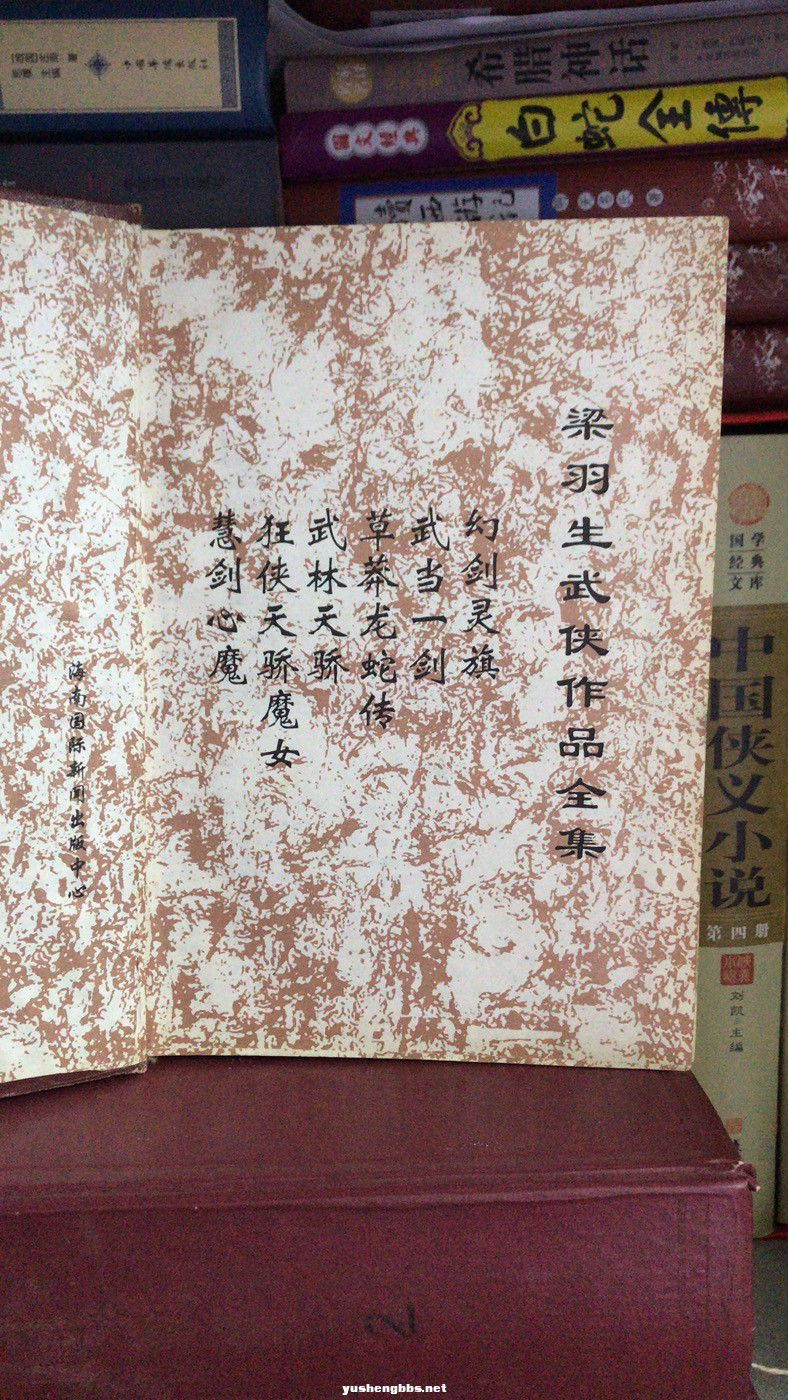 梁羽生武侠作品全集
幻剑灵旗
武当一剑
草莽龙蛇传
武林天骄
狂侠天骄魔女
慧剑心魔
海南国际新闻出版中心
希腊神话
国文经典
白蛇全傳
续西游记
国学
经典
文库
中国侠义小说
第四册
刘凯 主编
主编
2
yushengbbs.net